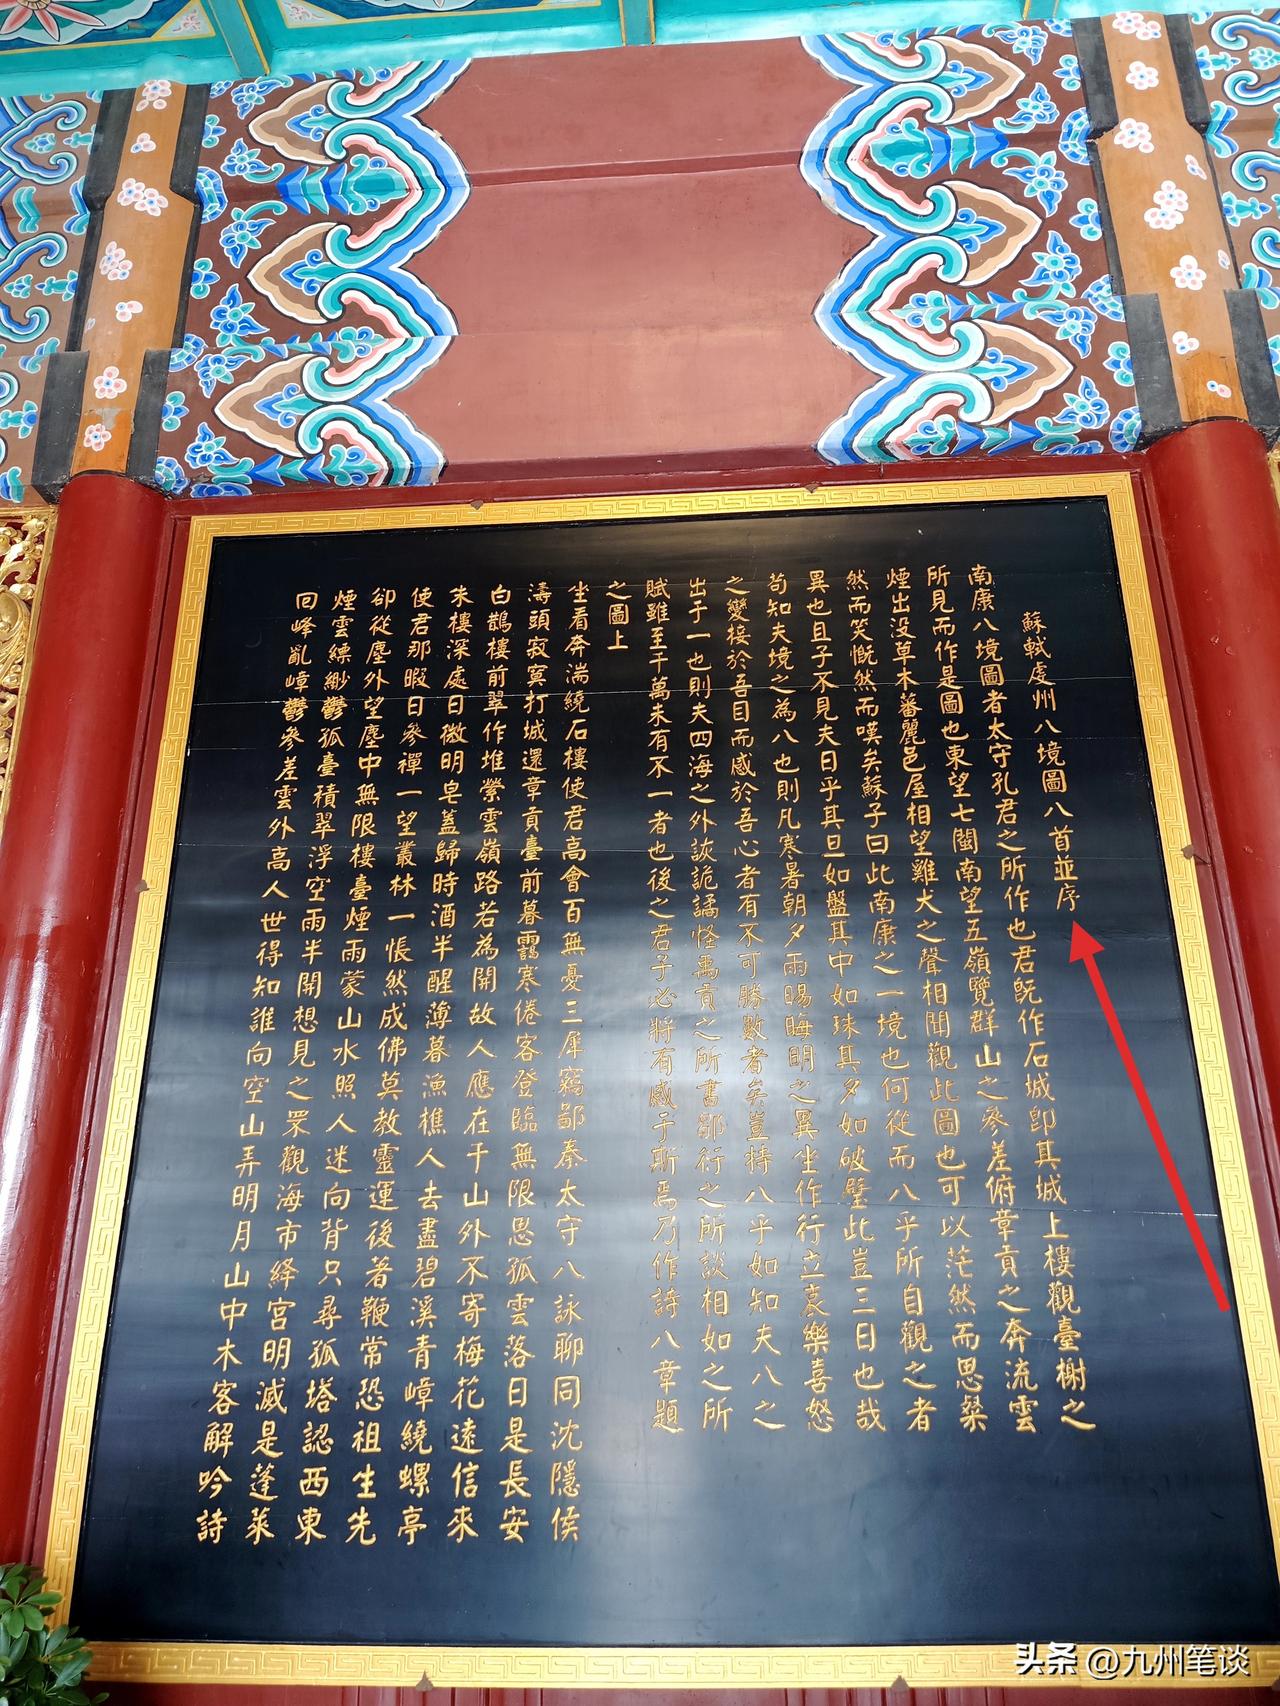 蘇軾虔州八境圖八首並序
南康八境圖者太守孔君之所作也君既作石城即其城上樓觀臺榭之
所見而作是圖也東望七閩南望五嶺覽群山之參差俯章貢之奔流雲
煙出没草木蕃麗邑屋相望雞犬之聲相聞觀此圖也可以茫然而思粲
然而笑慨然而嘆矣蘇子曰此南康之一境也何從而八乎所自觀之者
異也且子不見夫日乎其旦如盤其中如珠其夕如破璧此豈三日也哉
苟知夫境之為八也則凡寒暑朝夕雨暘晦明之異坐作行立哀樂喜怒
之變接於吾目而感於吾心者有不可勝數者矣豈特八乎如知夫八之
出于一也則夫四海之外詼詭譎怪禹貢之所書鄒衍之所談相如之所
賦雖至千萬未有不一者也後之君子必將有感于斯焉乃作詩八章題
之圖上
坐看奔湍繞石樓使君高會百無憂三犀竊鄙秦太守八詠聊同沈隱侯
濤頭寂寞打城還章貢臺前暮靄寒倦客登臨無限思孤雲落日是長安
白鵲樓前翠作堆縈雲嶺路若為開故人應在千山外不寄梅花遠信來
朱樓深處日微明皂蓋歸時酒半醒薄暮漁樵人去盡碧溪青嶂繞螺亭
使君那暇日參禪一望叢林一悵然成佛莫教靈運後著鞭常恐祖生先
卻從塵外望塵中無限樓臺煙雨蒙山水照人迷向背只尋孤塔認西東
煙雲縹緲鬱孤臺積翠浮空雨半開想見之罘觀海市絳宮明滅是蓬萊
回峰亂嶂鬱參差雲外高人世得知誰向空山弄明月山中木客解吟詩
头条@九州笔谈